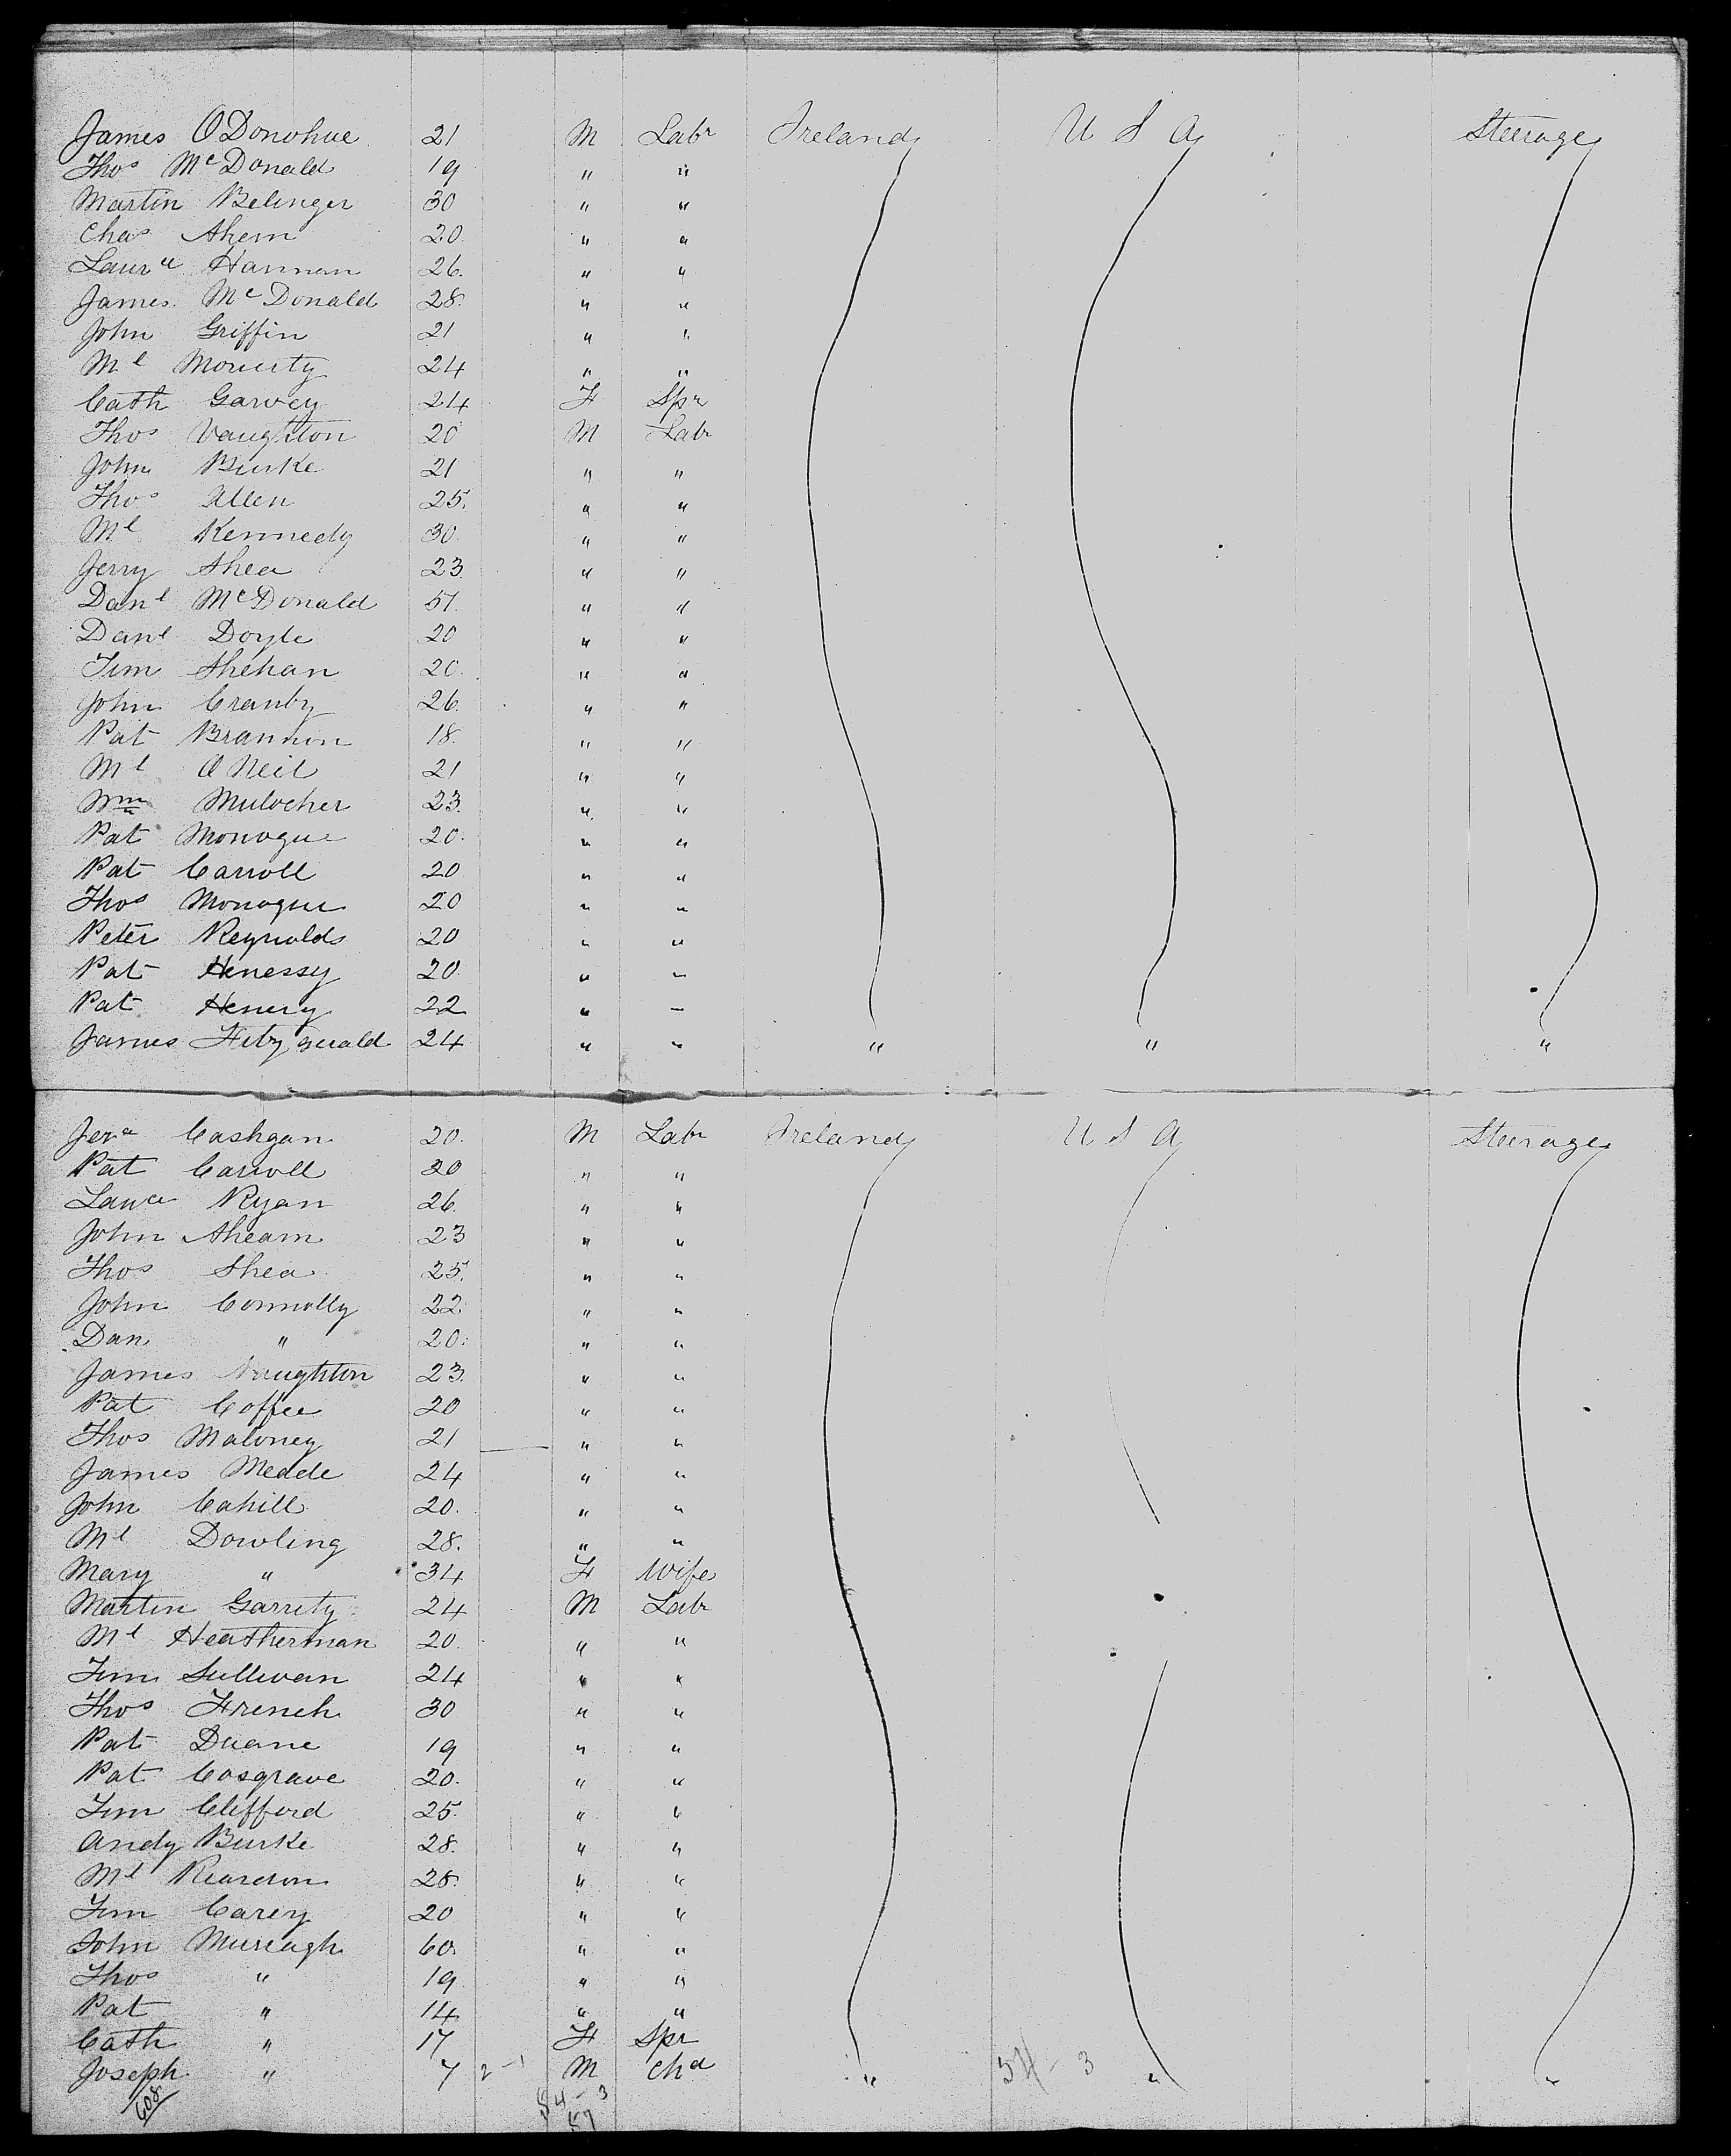 James ODonohue 21 M Labr Ireland U S A Steerage
Thos McDonald 19 " "
Martin Belinger 30 " "
Chas Ahern 20 " "
Laurce Hannan 26 " "
James McDonald 28 " "
John Griffin 21 " "
Ml Moriarty 24 " "
Cath Garvey 24 F Spr
Thos Naughton 20 M Labr
John Burke 21 " "
Thos Allen 25 " "
Ml Kennedy 30 " "
Jerry Shea 23 " "
Danl McDonald 51 " "
Danl Doyle 20 " "
Tim Shehan 20 " "
John Cranby 26 " "
Pat Brannon 18 " "
Ml O Neil 21 " "
Wm Mulocher 23 " "
Pat Monogue 20 " "
Pat Carroll 20 " "
Thos Monogue 20 " "
Peter Reynolds 20 " "
Pat Henessy 20 " "
Pat Henery 22 " "
James Fitzgerald 24 " " " " "
Jera Cashgan 20 M Labr Ireland U S A Steerage
Pat Carroll 20 " "
Lauce Ryan 26 " "
John Ahearn 23 " "
Thos Shea 25 " "
John Connolly 22 " "
Dan " 20 " "
James Naughton 23 " "
Pat Coffee 20 " "
Thos Maloney 21 " "
James Meade 24 " "
John Cahill 20 " "
Ml Dowling 28 " "
Mary " 34 F Wife
Martin Garrity 24 M Labr
Ml Heatherman 20 " "
Tim Sullivan 24 " "
Thos French 30 " "
Pat Duane 19 " "
Pat Cosgrave 20 " "
Tim Clifford 25 " "
Andy Burke 28 " "
Ml Reardon 28 " "
Tim Carey 20 " "
John Mureagh 60 " "
Thos " 19 " "
Pat " 14 " "
Cath " 17 F Spr
Joseph " 7 2-1 M Chd " 54-3 " "
608 54-3
57